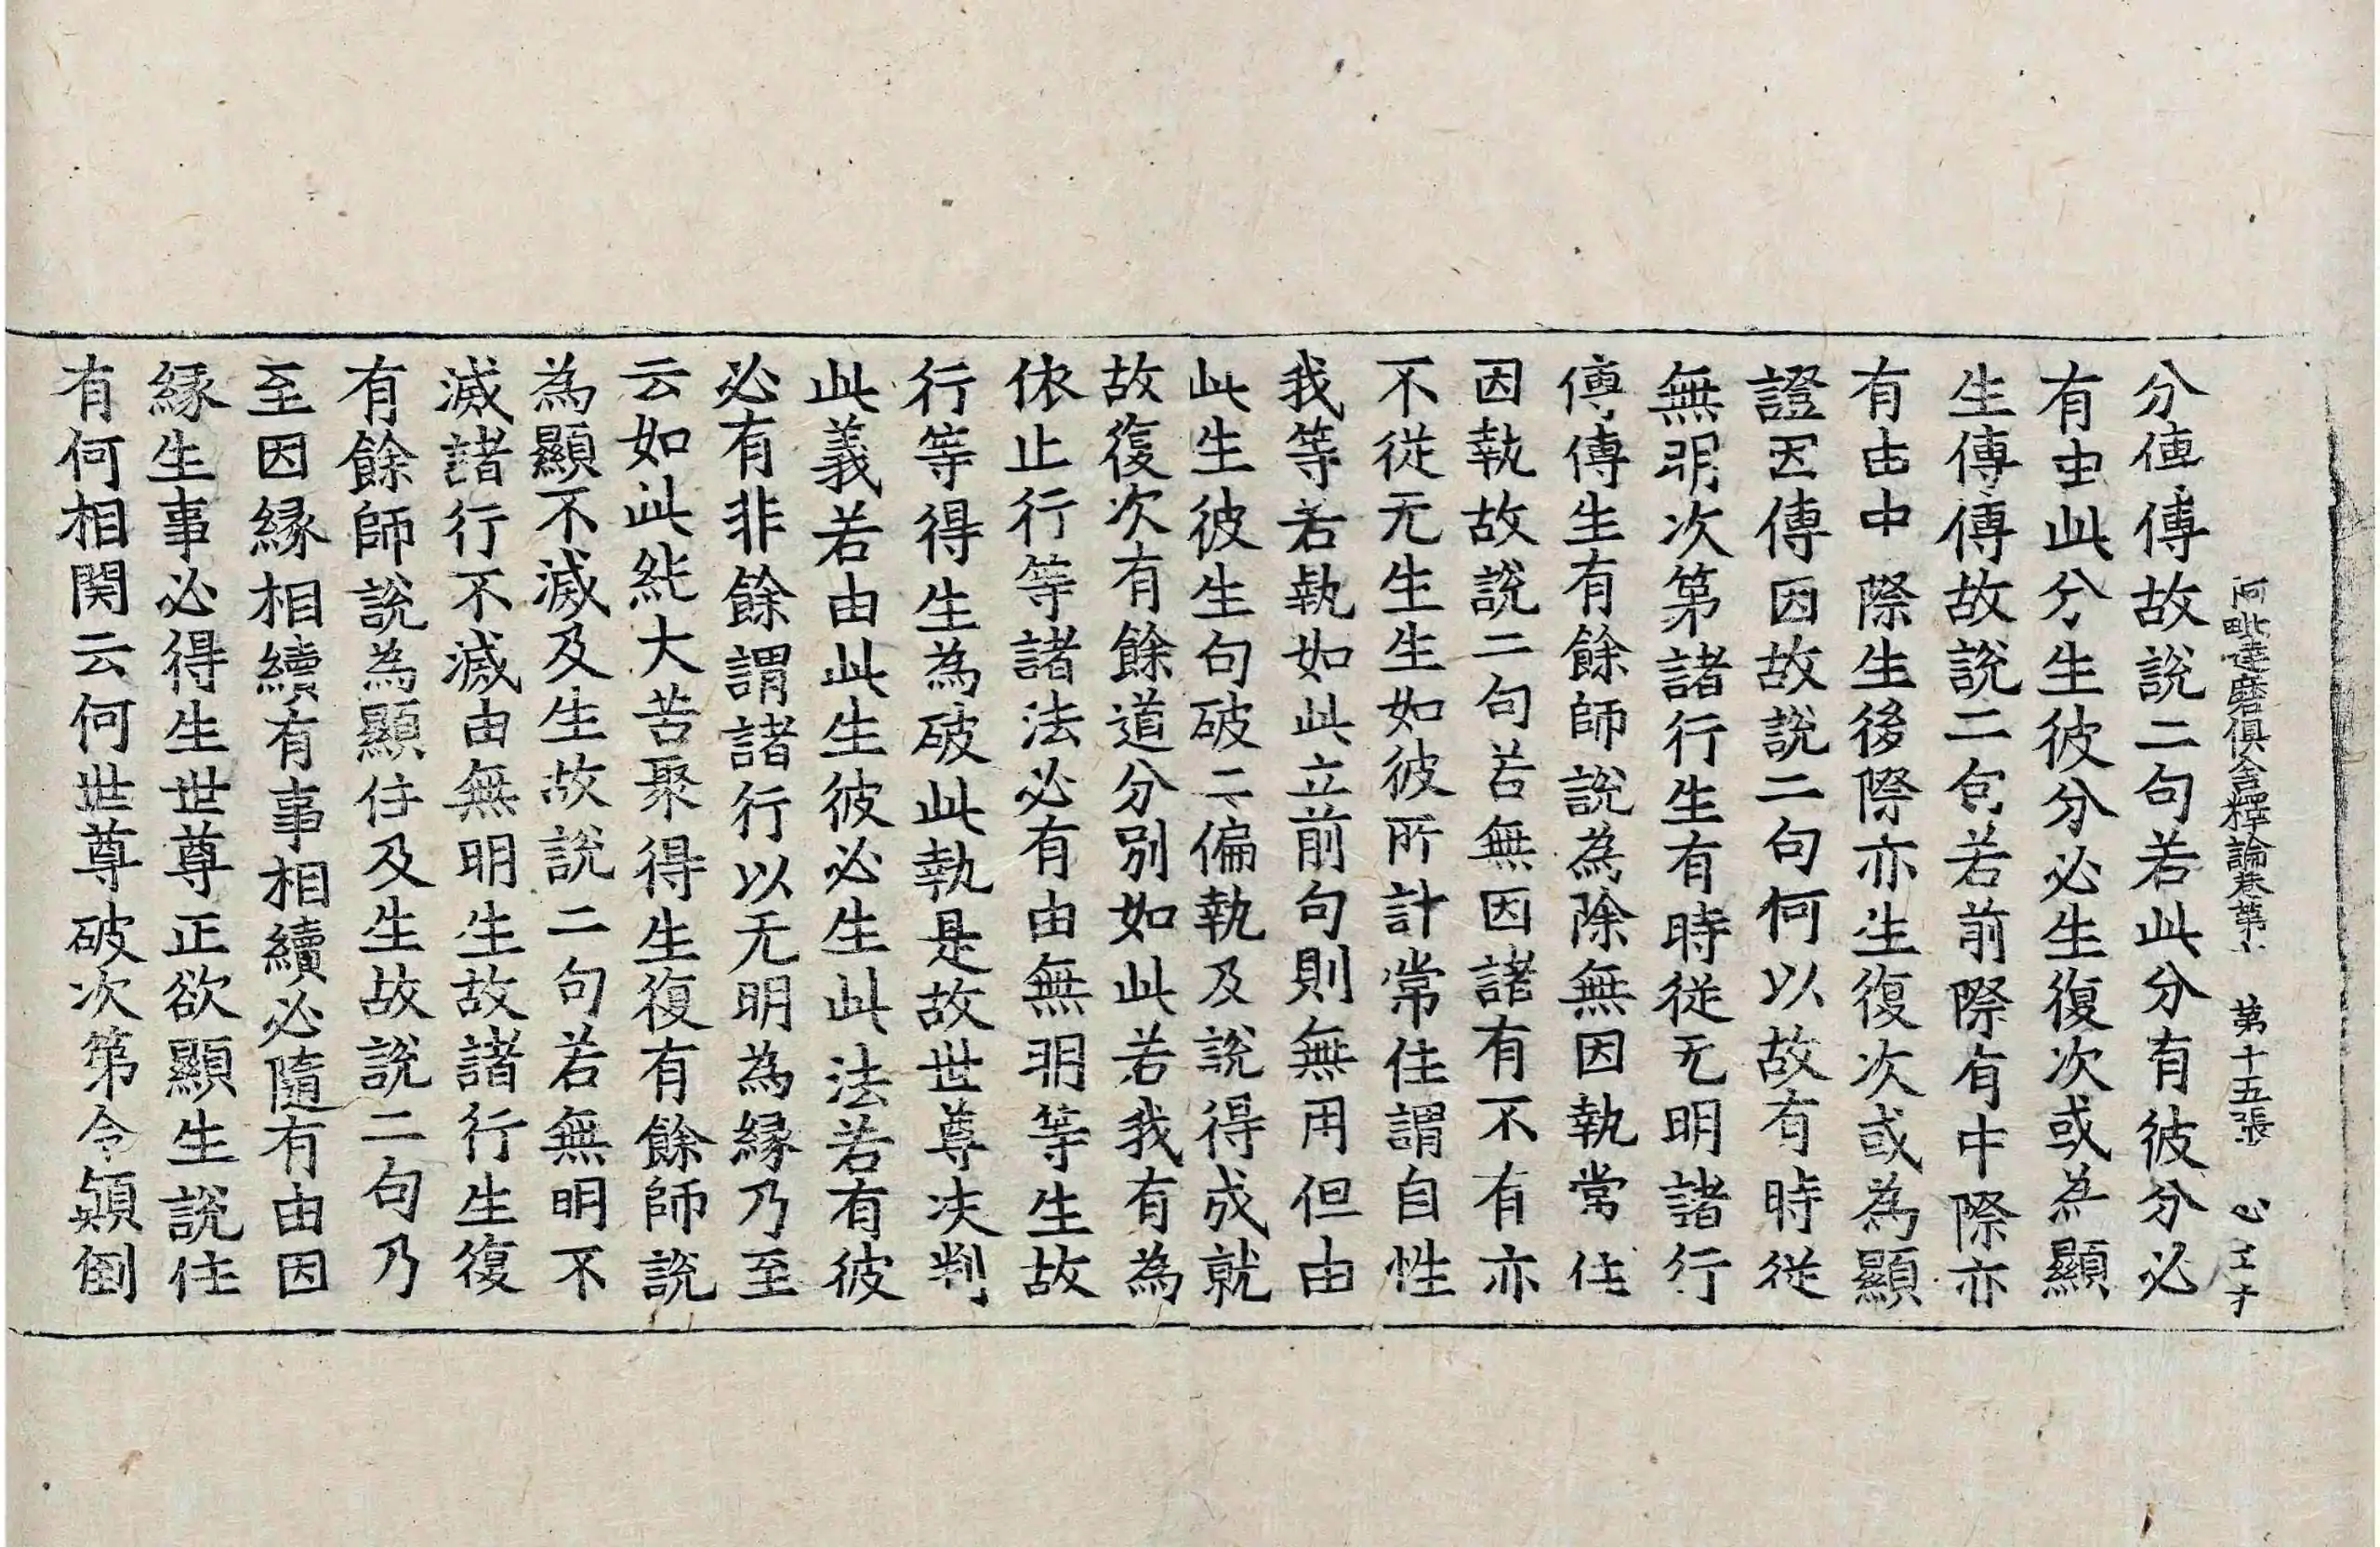 阿毗達磨俱舍釋論卷第七 第十五張 心
分傳傳故說二句若此分有彼分必
有由此分生彼分必生復次或為顯
生傳傳故說二句若前際有中際亦
有由中際生後際亦生復次或為顯
證因傳因故說二句何以故有時從
無明次第諸行生有時從无明諸行
傳傳生有餘師說為除無因執常住
因執故說二句若無因諸有不有亦
不從无生生如彼所計常住謂自性
我等若執如此立前句則無用但由
此生彼生句破二偏執及說得成就
故復次有餘道分別如此若我有為
依止行等諸法必有由無明等生故
行等得生為破此執是故世尊决判
此義若由此生彼必生此法若有彼
必有非餘謂諸行以无明為緣乃至
云如此純大苦聚得生復有餘師說
為顯不滅及生故說二句若無明不
滅諸行不滅由無明生故諸行生復
有餘師說為顯住及生故說二句乃
至因緣相續有事相續必隨有由因
緣生事必得生世尊正欲顯生說住
有何相関云何世尊破次第令顛倒